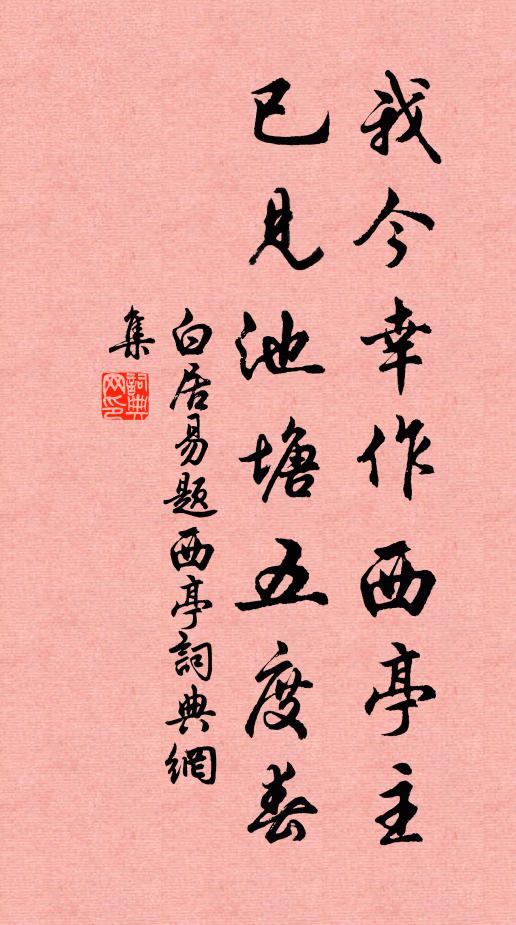 我今幸作西亭主
已見池塘五度春
白居易題西亭詞典網
集
詞典
网印